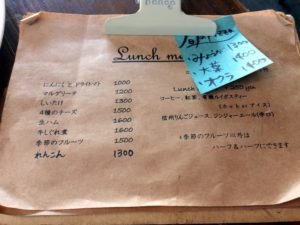 Lunch me
にんにくとドライトマト 1000
マルゲリータ 1200
しいたけ 1300
4種のチーズ 1500
生ハム 1600
牛しぐれ煮 1600
季節のフルーツ 1500
れんこん 1300
みょうが 1300
大葉 1400
オクラ
Lunch
コーヒー、紅茶、有機ルイボスティー
(hot or アイス)
信州りんごジュース、ジンジャーエール(辛口)
季節のフルーツ以外は
ハーフ&ハーフにできます